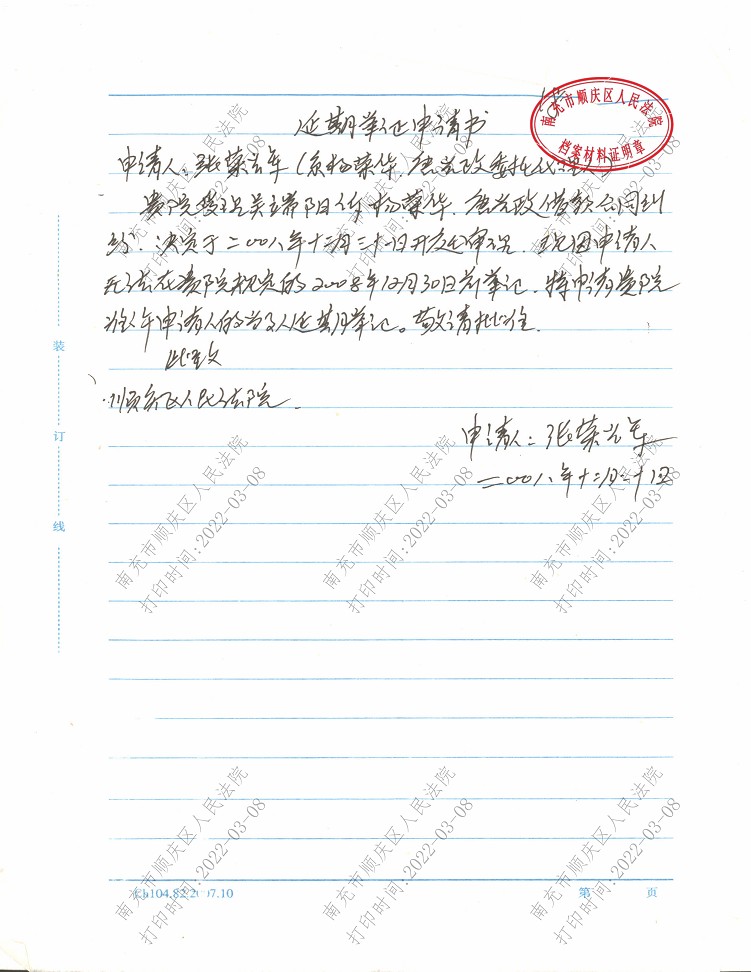 南充市顺庆区人民法院
档案材料证明章
延期举证申请书
申请人：张荣兴军（系杨荣华、唐兴政委托代理人）
贵院受理吴端阳诉杨荣华、唐兴政借款合同纠
纷，决定于二00八年十二月三十一日开庭审理，现因申请人
无法在贵院规定的2008年12月30日前举证，特申请贵院
准许申请人的当事人延期举证。敬请批准。
此致
顺庆区人民法院
申请人：张荣兴军
二00八年十二月二十日
装
订
线
南充市顺庆区人民法院
打印时间:2022-03-08
南充市顺庆区人民法院
打印时间:2022-03-08
南充市顺庆区人民法院
打印时间:2022-03-08
南充市顺庆区人民法院
打印时间:2022-03-08
南充市顺庆区人民法院
打印时间:2022-03-08
南充市顺庆区人民法院
打印时间:2022-03-08
南充市顺庆区人民法院
打印时间:2022-03-08
南充市顺庆区人民法院
打印时间:2022-03-08
南充市顺庆区人民法院
打印时间:2022-03-08
第 页